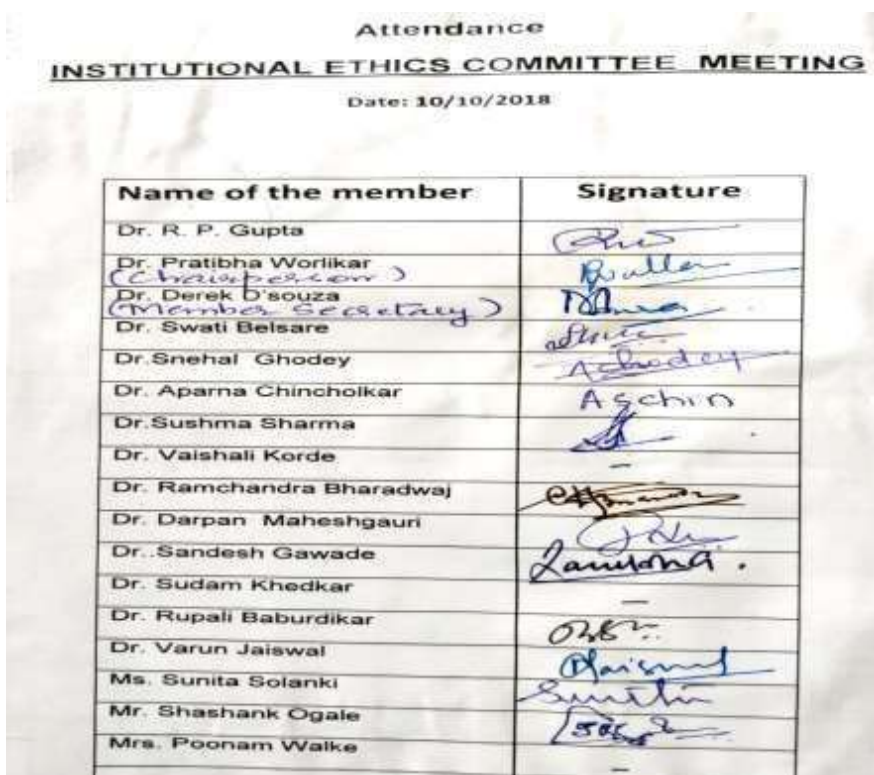 Attendance
INSTITUTIONAL ETHICS COMMITTEE MEETING
Date: 10/10/2018
Name of the member Signature
Dr. R. P. Gupta
Dr. Pratibha Worlikar
(Chairperson)
Dr. Derek D'souza
(Member Secretary)
Dr. Swati Belsare
Dr.Snehal Ghodey AGhodey
Dr. Aparna Chincholkar Aschin
Dr.Sushma Sharma
Dr. Vaishali Korde -
Dr. Ramchandra Bharadwaj
Dr. Darpan Maheshgauri
Dr..Sandesh Gawade
Dr. Sudam Khedkar -
Dr. Rupali Baburdikar
Dr. Varun Jaiswal
Ms. Sunita Solanki
Mr. Shashank Ogale
Mrs. Poonam Walke -